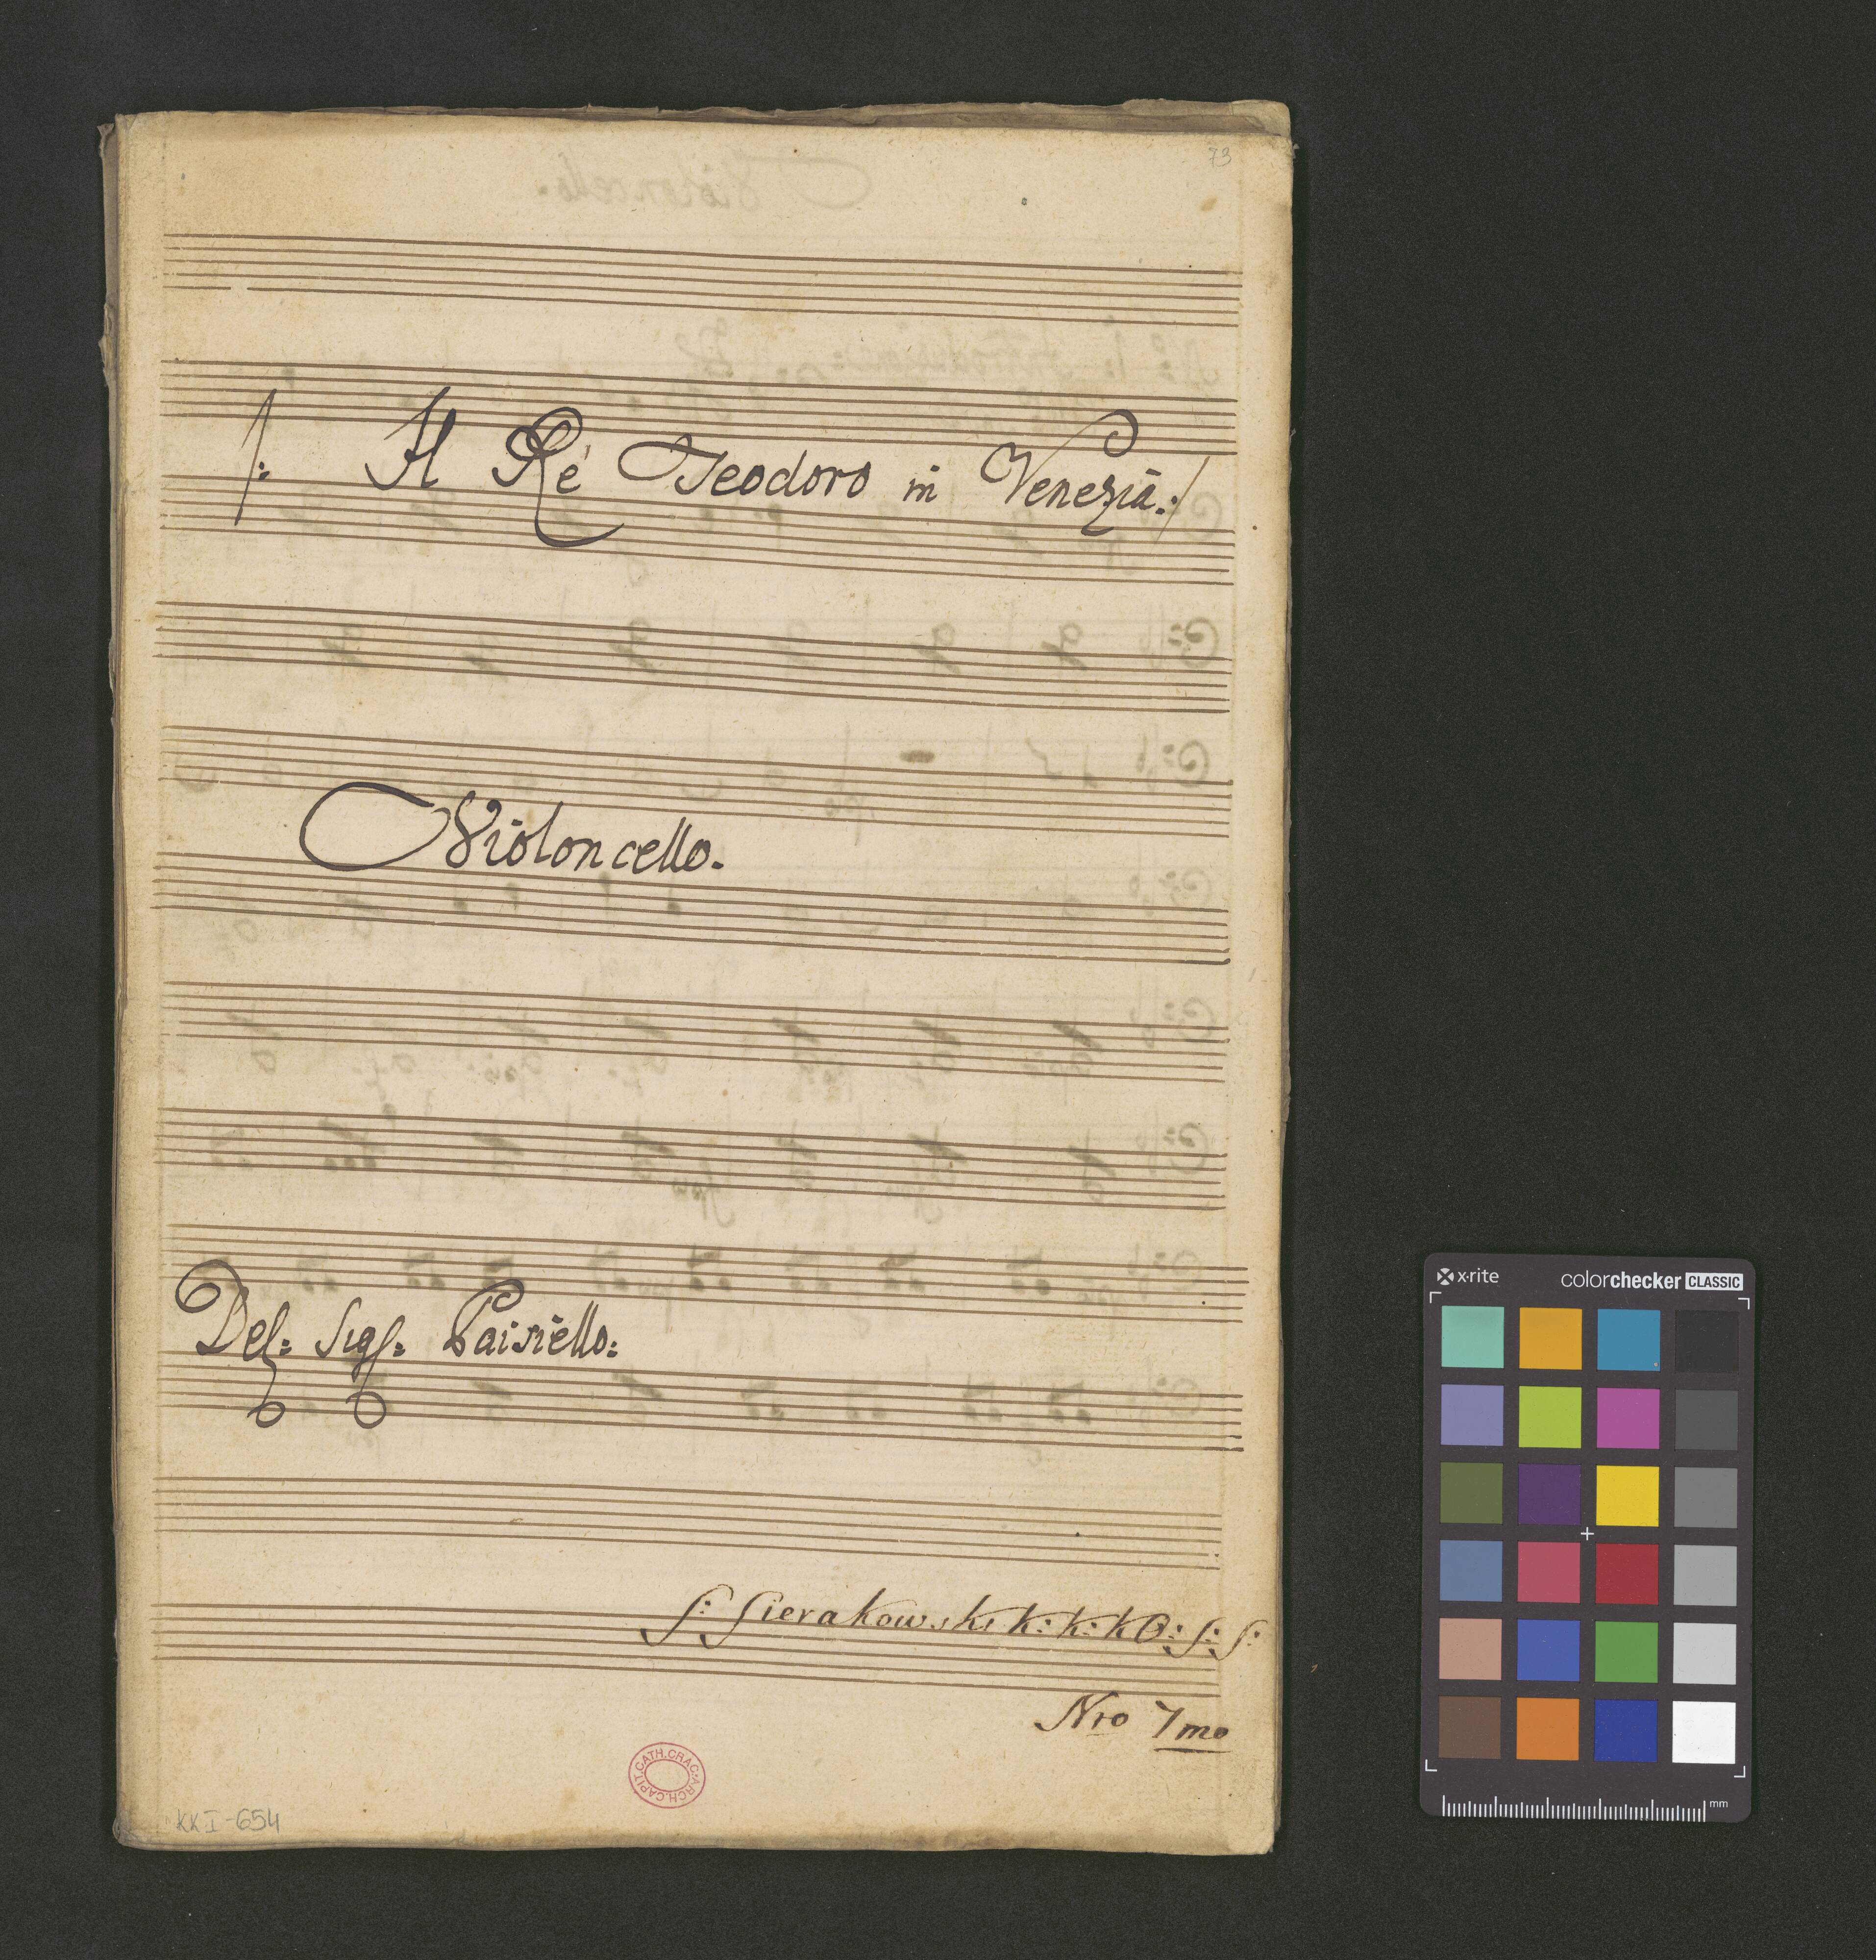 73
/: Il Ré Teodoro in Venezia:/
Violoncello.
Del: Sigl: Paisiello:
S: Sierakowski k: k: k O: S: S:
Nro 7mo
ARCH.CAPIT.CATH.CRAC.
KK I-654
x·rite colorchecker CLASSIC
mm